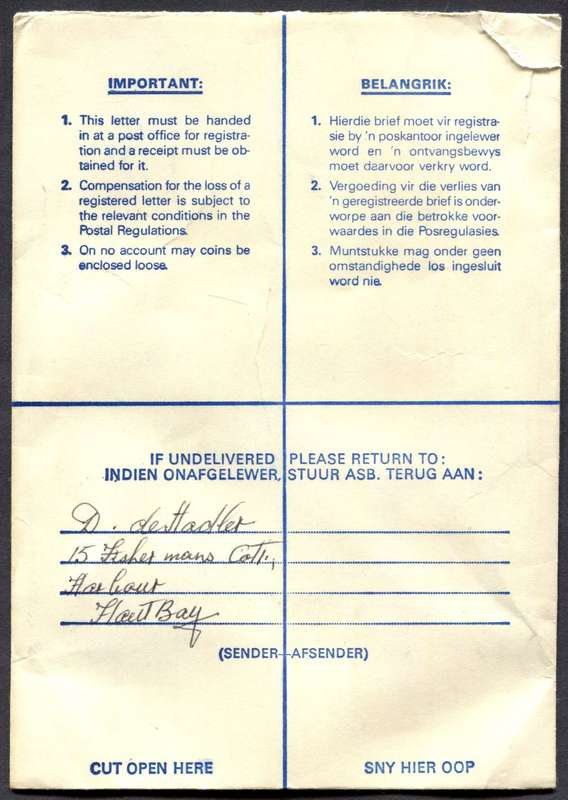 IMPORTANT:
1. This letter must be handed
in at a post office for registra-
tion and a receipt must be ob-
tained for it.
2. Compensation for the loss of a
registered letter is subject to
the relevant conditions in the
Postal Regulations.
3. On no account may coins be
enclosed loose.
BELANGRIK:
1. Hierdie brief moet vir registra-
sie by 'n poskantoor ingelewer
word en 'n ontvangsbewys
moet daarvoor verkry word.
2. Vergoeding vir die verlies van
'n geregistreerde brief is onder-
worpe aan die betrokke voor-
waardes in die Posregulasies.
3. Muntstukke mag onder geen
omstandighede los ingesluit
word nie.
IF UNDELIVERED PLEASE RETURN TO:
INDIEN ONAFGELEWER, STUUR ASB. TERUG AAN:
D. de Stadler
15 Fishermans Cott.,
Harbour
Hout Bay
(SENDER—AFSENDER)
CUT OPEN HERE
SNY HIER OOP